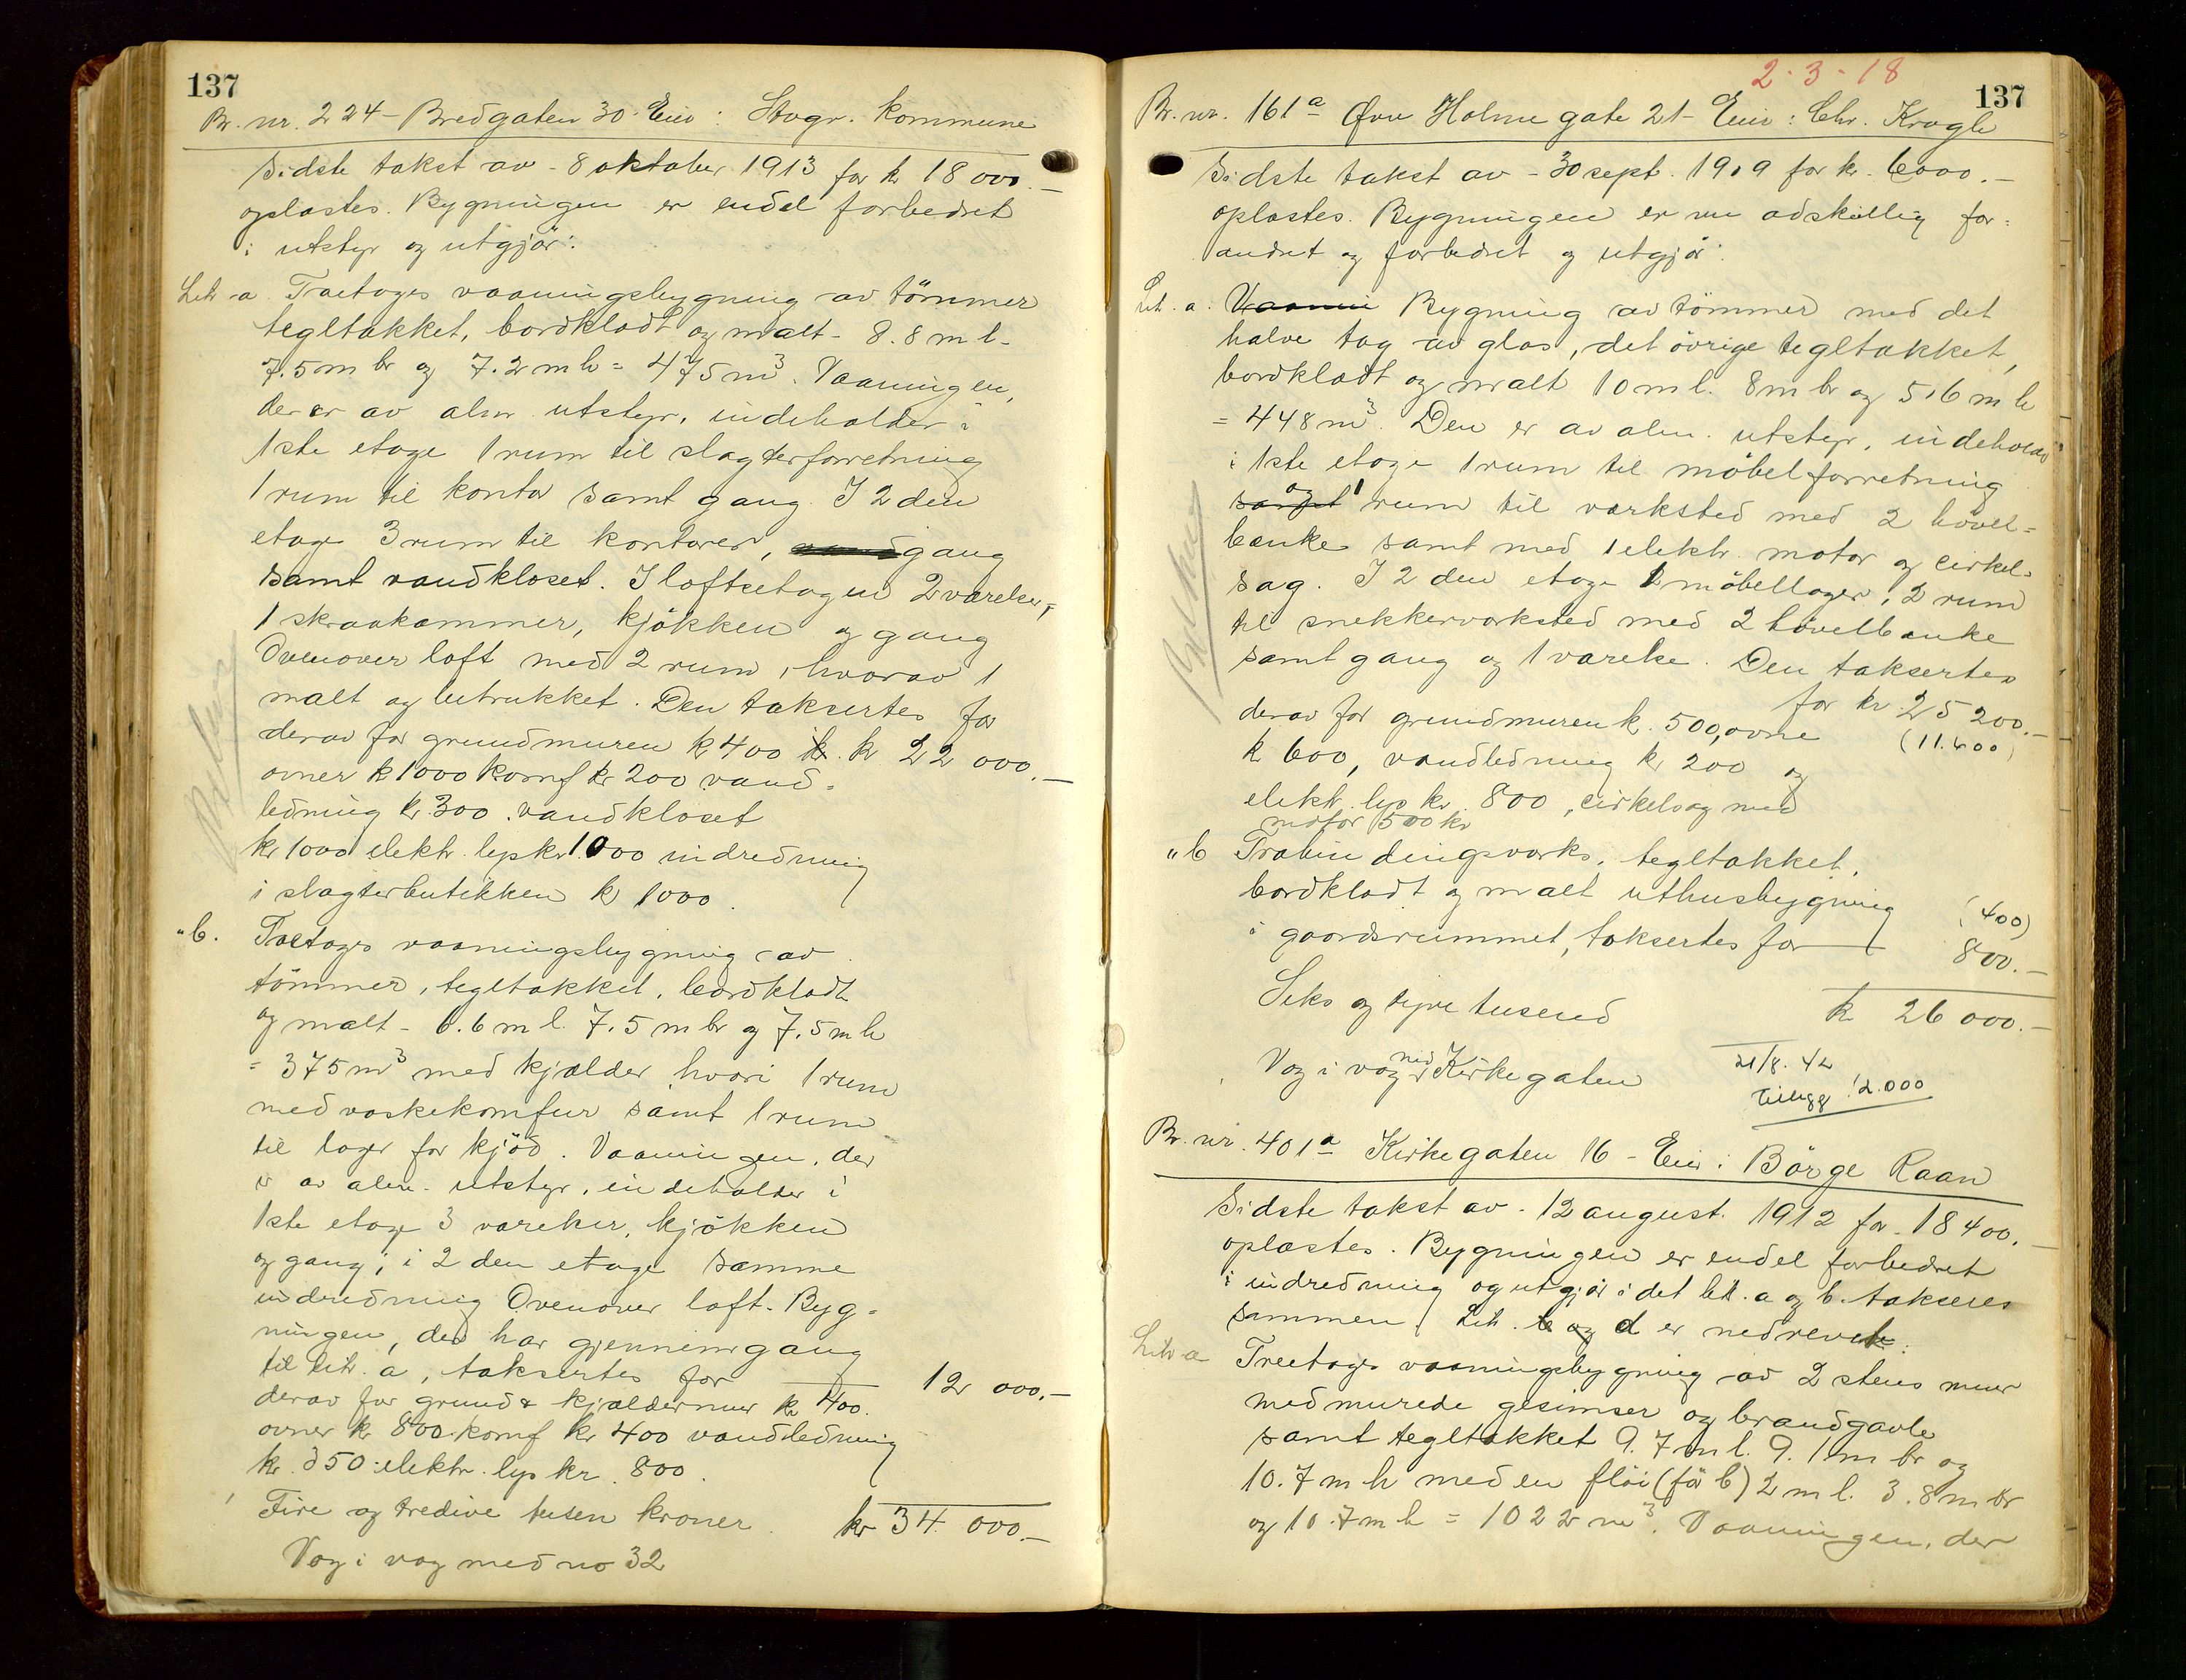 137
Br. nr. 224 - Bredgaten 30 - Eier: Stvgr. kommune
Sidste takst av - 8 oktober 1913 for kr 18 000.-
oplæstes. Bygningen er endel forbedret
i utstyr og utgjör:
Litr a. Toetages vaaningsbygning av tömmer
tegltækket, bordklædt og malt - 8.8 m l -
7.5 m br og 7.2 m h = 475 m³. Vaaningen,
der er av alm. utstyr, indeholder i
1ste etage 1 rum til slagterforretning
1 rum til kontor samt gang. I 2 den
etage 3 rum til kontorer, gang
samt vandkloset. I loftsetagen 2 værelser,
1 skraakammer, kjökken og gang
Ovenover loft med 2 rum, hvorav 1
malt og betrukket. Den taksertes for
derav for grundmuren kr 400 kr. kr 22 000.-
ovner kr 1000 komf kr 200 vand-
ledning kr 300. vandkloset
kr 1000 elektr. lys kr 1000 indredning
i slagterbutikken kr 1000.
" b. Toetages vaaningsbygning av
tömmer, tegltækket, bordklædt
og malt - 6.6 m l. 7.5 m br og 7.5 m h
= 375 m³ med kjælder hvori 1 rum
med vaskekomfur samt 1 rum
til lager for kjöd. Vaaningen, der
er av alm. utstyr, indeholder i
1ste etage 3 værelser, kjökken
og gang; i 2 den etage samme
indredning Ovenover loft. Byg-
ningen, der har gjennemgang
til litr. a, taksertes for 12 000.-
derav for grund & kjældermur kr 400.
ovner kr 800. komf kr 400 vandledning
kr. 350. elektr. lys kr. 800.
Fire og tredive tusen kroner. kr 34 000.-
Væg i væg med no 32
2-3-18
137
Br. nr. 161a Øvre Holme gate 21 - Eier: Chr. Kragle
Sidste takst av - 30 sept. 1909 for kr. 6000.-
oplæstes. Bygningen er nu adskillig for-
andret og forbedret og utgjör:
Lit. a. Vaanin Bygning av tömmer med det
halve tag av glas, det övrige tegltækket,
bordklædt og malt 10 m l. 8 m br og 5.6 m h
= 448 m³. Den er av alm. utstyr, indeholder
i 1ste etage 1 rum til möbelforretning
samt og 1 rum til verksted med 2 hövel-
bænke samt med 1 elektr. motor og cirkel-
sag. I 2 den etage 1 möbellager, 2 rum
til snekkerverksted med 2 hövelbænke
samt gang og 1 værelse. Den taksertes
for kr 25 200.-
derav for grundmuren k. 500, ovne (11.600)
k 600, vandledning kr 200 og
elektr. lys kr. 800, cirkelsag med
motor 500 kr
" b Træbindingsverks, tegltækket,
bordklædt og malt uthusbygning (400)
i gaardsrummet, taksertes for 800.-
Seks og tyve tusend k 26 000.-
Væg i væg med 7 Kirkegaten 21/8. 42
tillegg 12.000
Br. nr. 401a Kirkegaten 16 - Eier: Börge Raan
Sidste takst av - 12 august 1912 for 18 400.-
oplæstes. Bygningen er endel forbedret
i indredning og utgjör i det litr. a og b. takseres
sammen. Litr. c og d er nedrevet.
Litr a Treetages vaaningsbygning av 2 stens mur
med murede gesimser og brandgavle
samt tegltækket 9.7 m l. 9.1 m br og
10.7 m h med en flöi (för b) 2 m l. 3.8 m br
og 10.7 m h = 1022 m³. Vaaningen, der